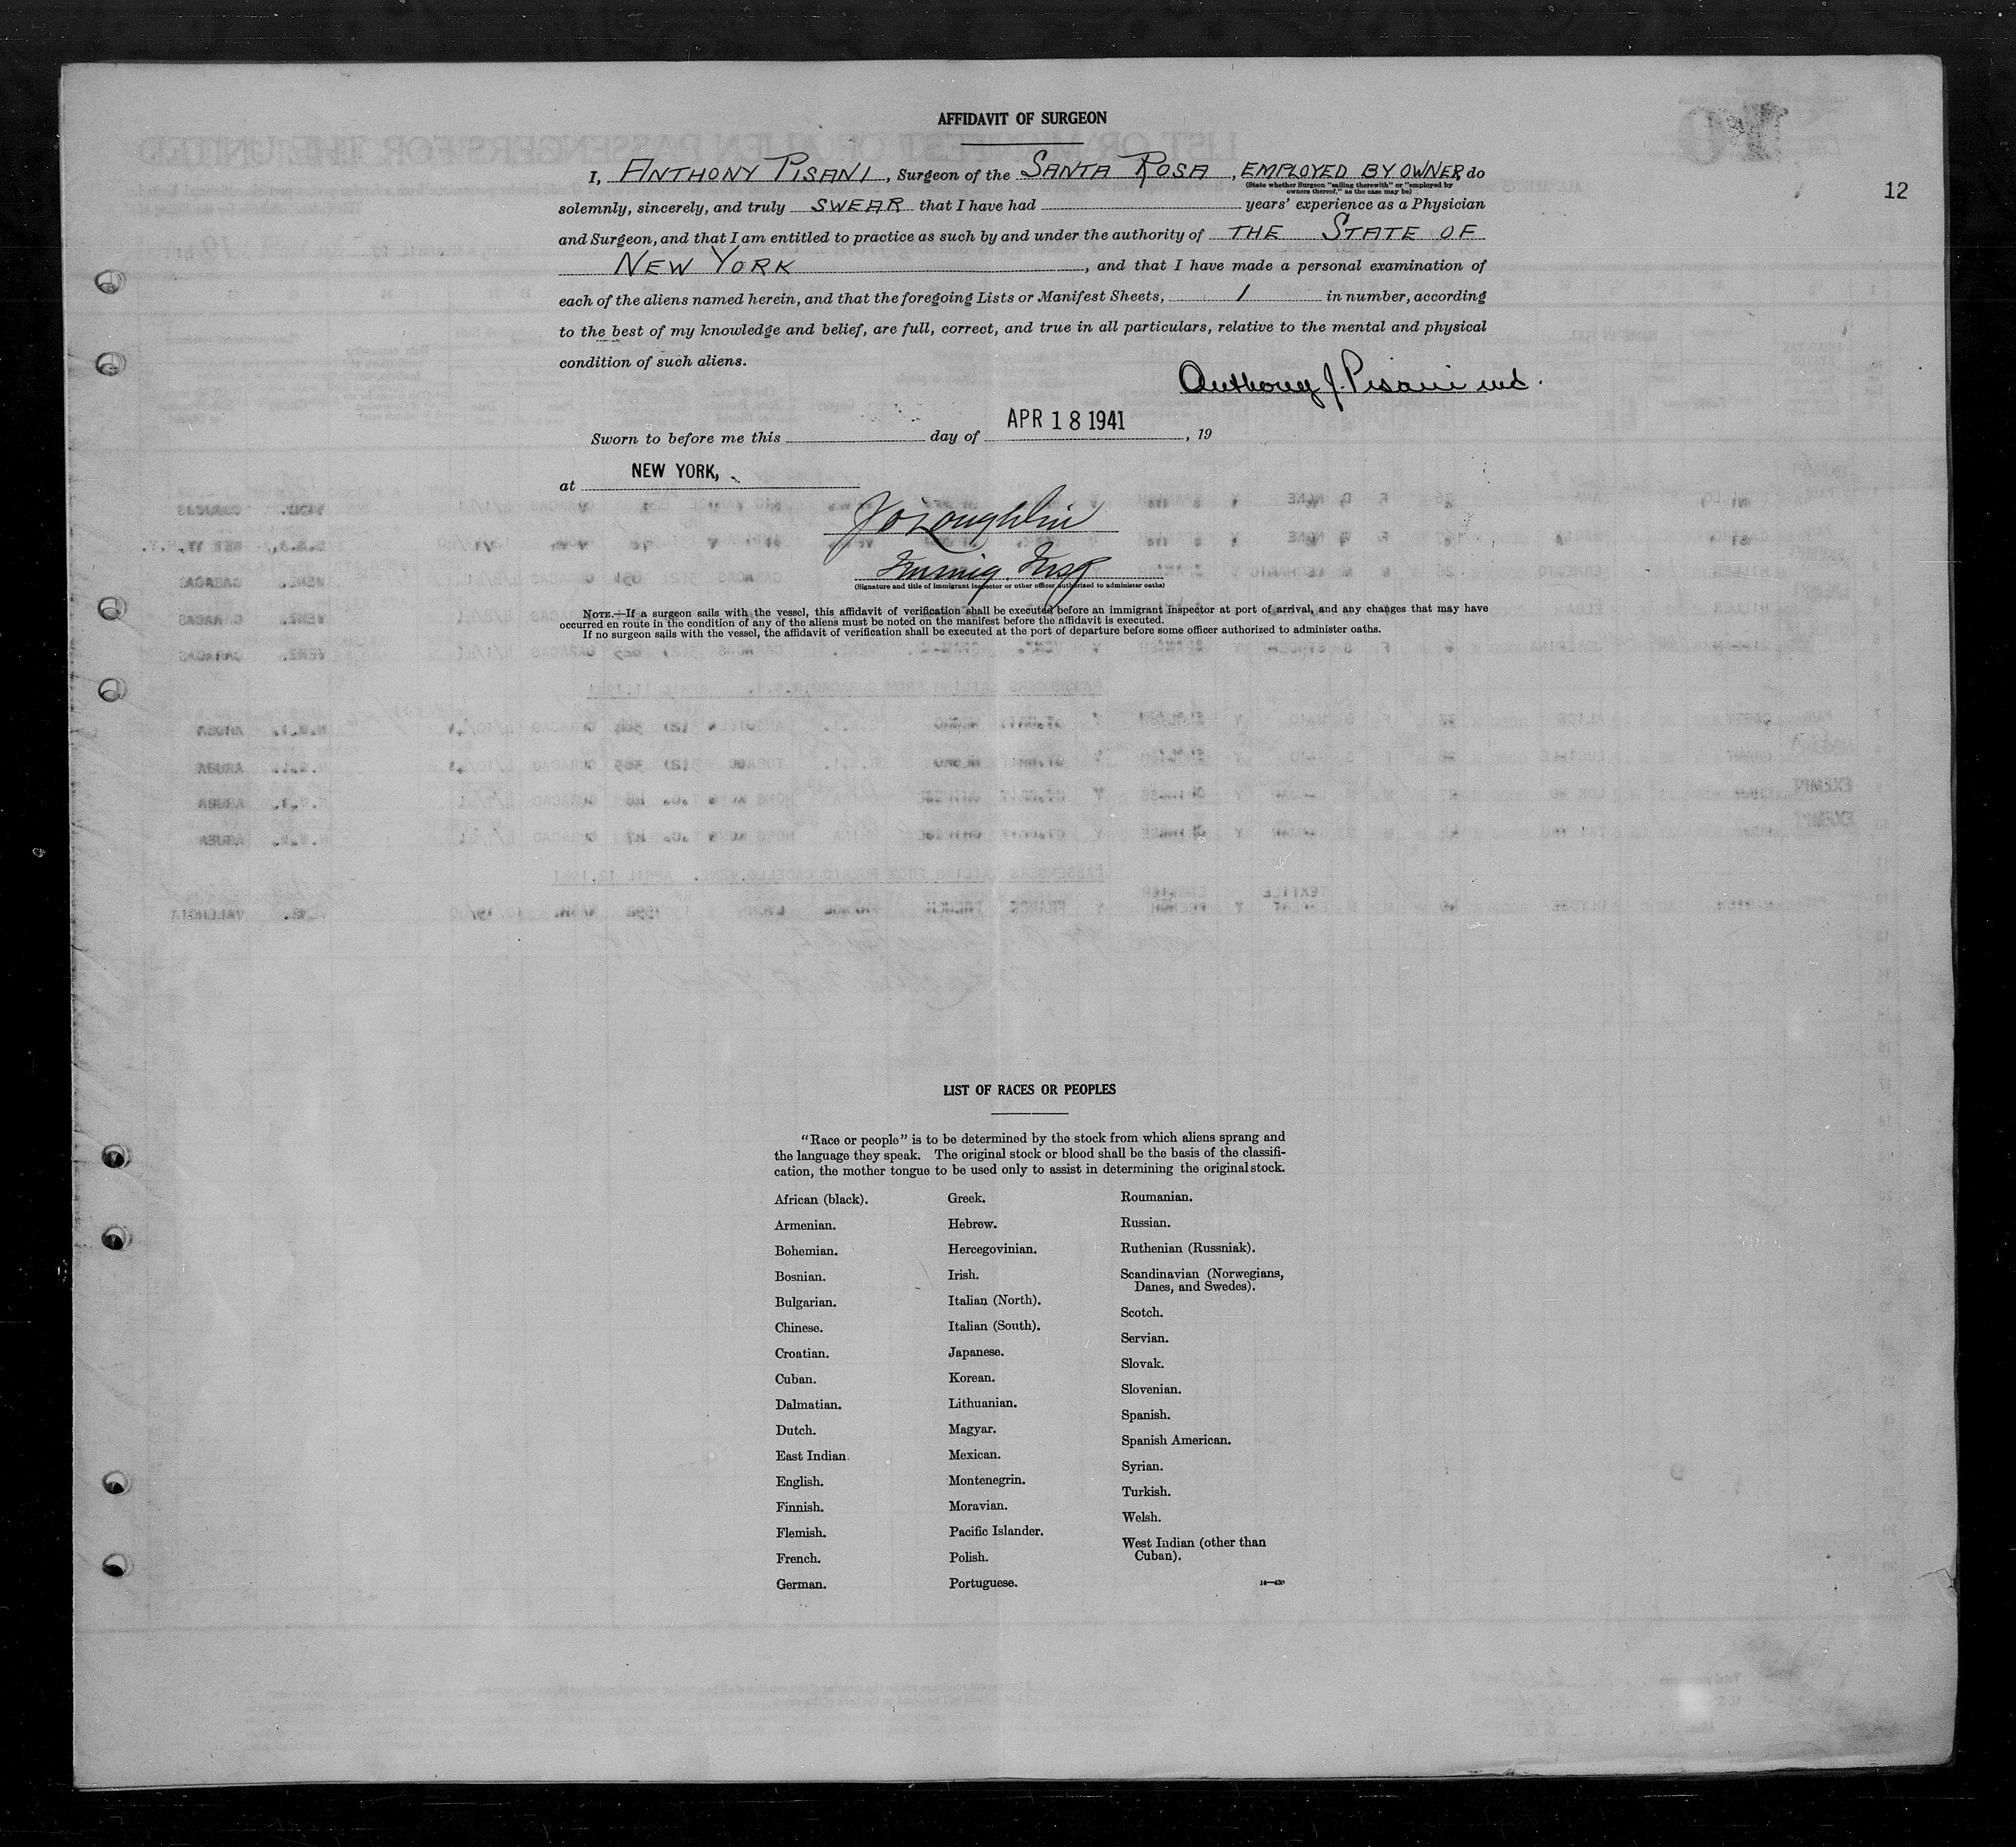 AFFIDAVIT OF SURGEON
12
I, ANTHONY PISANI, Surgeon of the SANTA ROSA, EMPLOYED BY OWNER, do
(State whether Surgeon "sailing therewith" or "employed by
owners thereof," as the case may be)
solemnly, sincerely, and truly SWEAR that I have had years' experience as a Physician
and Surgeon, and that I am entitled to practice as such by and under the authority of THE STATE OF
NEW YORK, and that I have made a personal examination of
each of the aliens named herein, and that the foregoing Lists or Manifest Sheets, 1 in number, according
to the best of my knowledge and belief, are full, correct, and true in all particulars, relative to the mental and physical
condition of such aliens.
Anthony J. Pisani md.
Sworn to before me this day of APR 18 1941, 19
at NEW YORK,
J O'Loughlin
Immig. Insp
(Signature and title of immigrant inspector or other officer authorized to administer oaths)
NOTE.—If a surgeon sails with the vessel, this affidavit of verification shall be executed before an immigrant inspector at port of arrival, and any changes that may have
occurred en route in the condition of any of the aliens must be noted on the manifest before the affidavit is executed.
If no surgeon sails with the vessel, the affidavit of verification shall be executed at the port of departure before some officer authorized to administer oaths.
LIST OF RACES OR PEOPLES
"Race or people" is to be determined by the stock from which aliens sprang and
the language they speak. The original stock or blood shall be the basis of the classifi-
cation, the mother tongue to be used only to assist in determining the original stock.
African (black).
Armenian.
Bohemian.
Bosnian.
Bulgarian.
Chinese.
Croatian.
Cuban.
Dalmatian.
Dutch.
East Indian
English.
Finnish.
Flemish.
French.
German.
Greek.
Hebrew.
Hercegovinian.
Irish.
Italian (North).
Italian (South).
Japanese.
Korean.
Lithuanian.
Magyar.
Mexican.
Montenegrin.
Moravian.
Pacific Islander.
Polish.
Portuguese.
Roumanian.
Russian.
Ruthenian (Russniak).
Scandinavian (Norwegians,
Danes, and Swedes).
Scotch.
Servian.
Slovak.
Slovenian.
Spanish.
Spanish American.
Syrian.
Turkish.
Welsh.
West Indian (other than
Cuban).